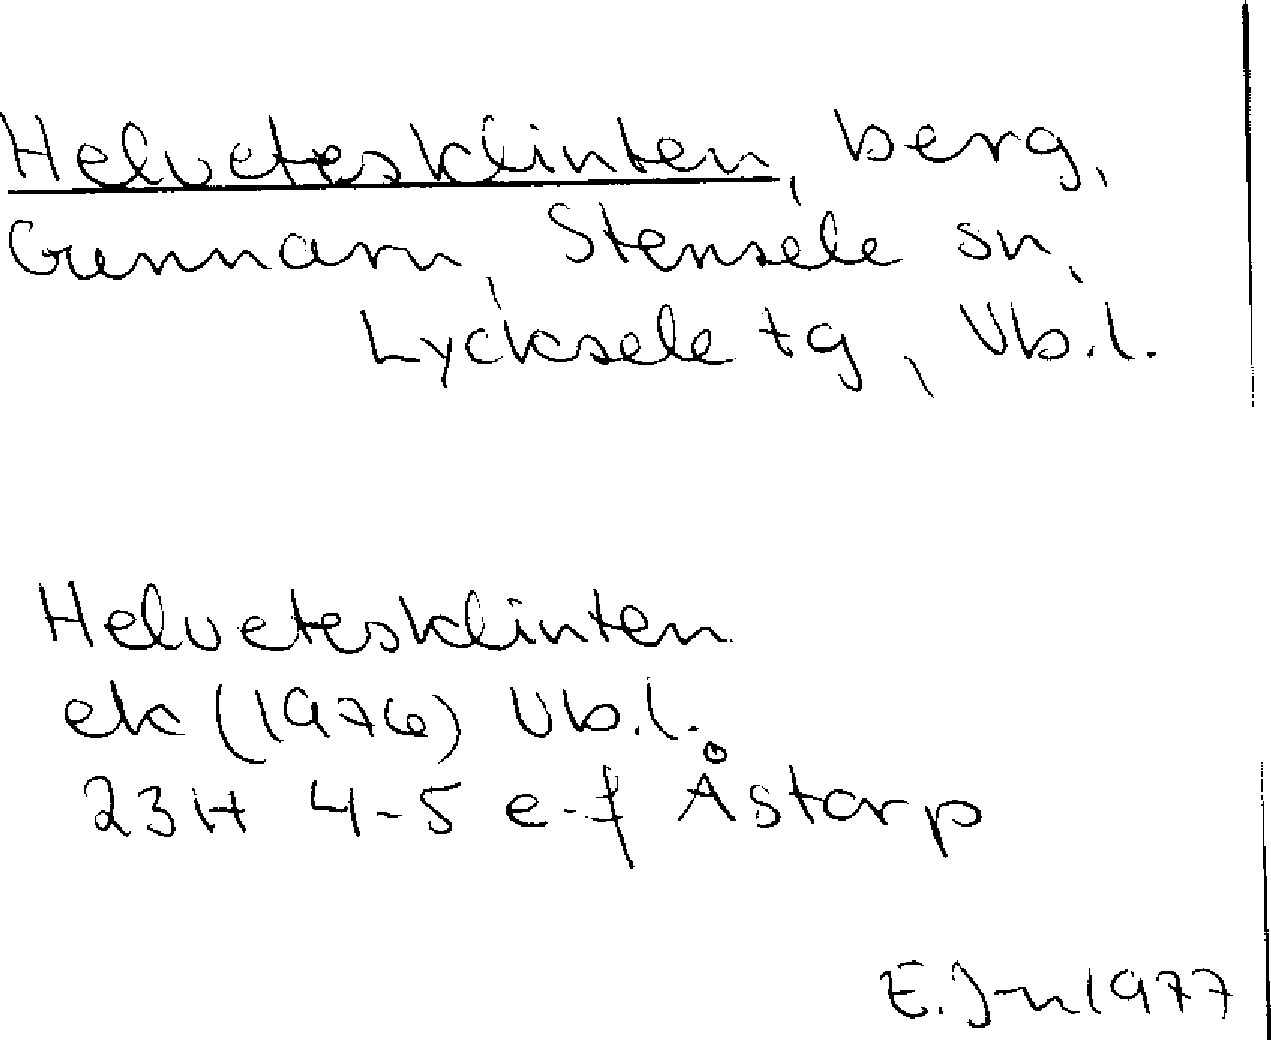 Helvetesklinten, berg,
Gunnarn, Stensele sn,
Lycksele tg, Vb.l.
Helvetesklinten
ek (1976) Vb.l.
23H 4-5 e-f Åstorp
E. J-n 1977